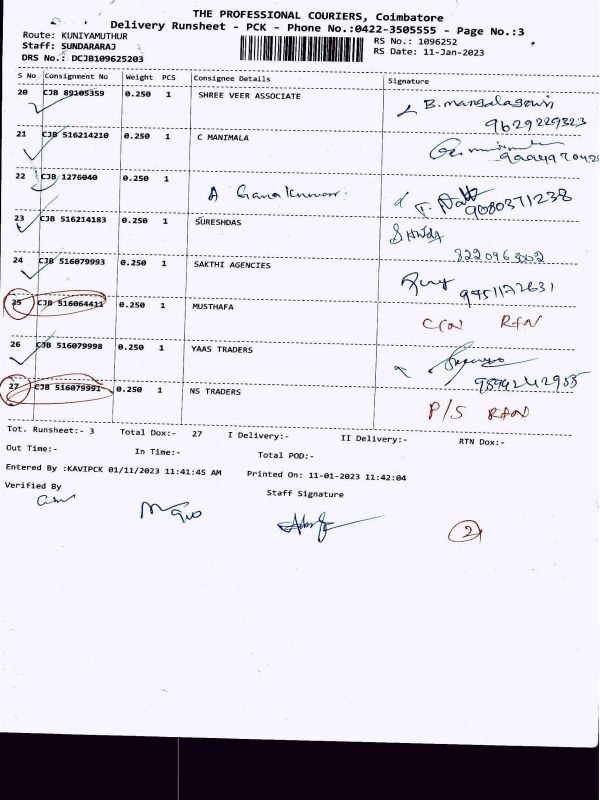 THE PROFESSIONAL COURIERS, Coimbatore
Delivery Runsheet - PCK - Phone No.:0422-3505555 - Page No.:3
Route: KUNIYAMUTHUR
RS No.: 1096252
Staff: SUNDARARAJ
RS Date: 11-Jan-2023
DRS No.: DCJB109625203
S No Consignment No Weight PCS Consignee Details Signature
20 CJB 89105359 0.250 1 SHREE VEER ASSOCIATE
9629229323
21 CJB 516214210 0.250 1 C MANIMALA
22 CJB 1276040 0.250 1
9080371238
23 CJB 516214183 0.250 1 SURESHDAS
24 CJB 516079993 0.250 1 SAKTHI AGENCIES
25 CJB 516064411 0.250 1 MUSTHAFA
26 CJB 516079998 0.250 1 YAAS TRADERS
27 CJB 516079991 0.250 1 NS TRADERS
P/S
Tot. Runsheet:- 3 Total Dox:- 27 I Delivery:- II Delivery:- RTN Dox:-
Out Time:- In Time:- Total POD:-
Entered By :KAVIPCK 01/11/2023 11:41:45 AM Printed On: 11-01-2023 11:42:04
Verified By Staff Signature
2